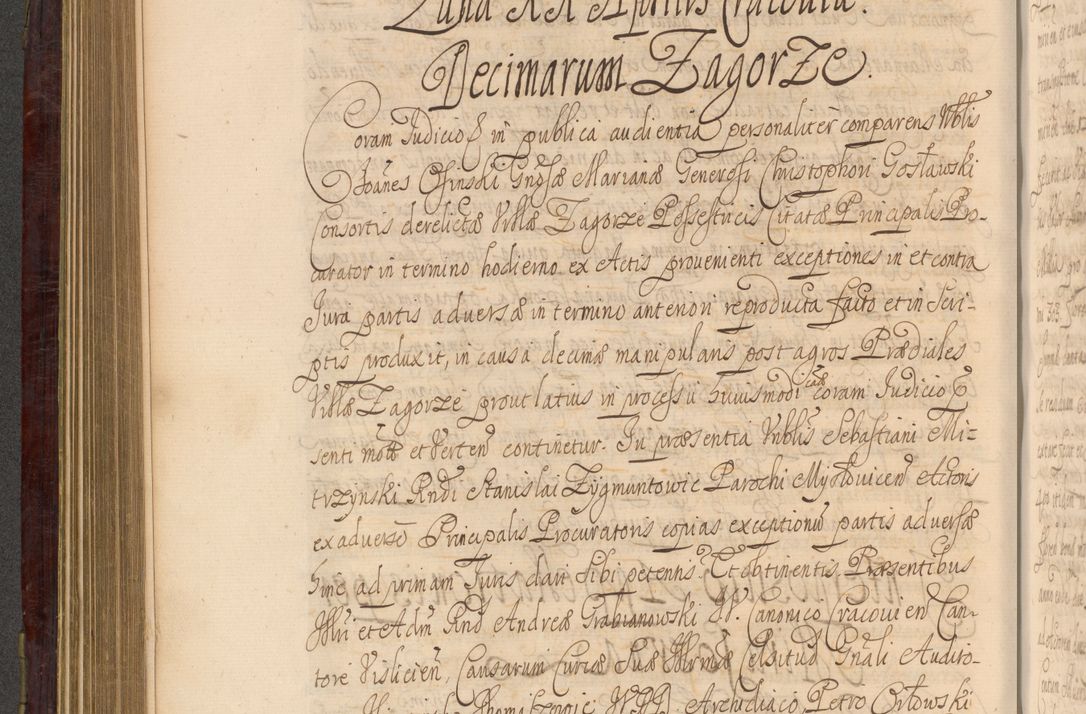 Luna XX Aprilis Cracoviæ.
Decimarum Zagorze.
Coram Judicio & in publica audientia personaliter comparens Nblis
Joanes Ofinski Gnosæ Marianæ Generosi Christophori Gosławski
Consortis derelictæ Villæ Zagorze Possestricis Citatæ Principalis Pro-
curator in termino hodierno ex Actis provenienti exceptiones in et contra
Jura partis adversæ in termino anteriori reproducta facto et in Scri-
ptis produxit, in causa decimæ manipularis post agros Prædiales
Villæ Zagorze prout latius in processu huiusmodi causæ coram Judicio P
senti mott et verten continetur. In præsentia Nblis Sebastiani Mi-
trzynski Rndi Stanislai Zygmuntowic Parochi Mysłovicen Actoris
ex adverso Principalis Procuratoris copias exceptionum partis adversæ
hinc ad primam Juris dari Sibi petentis. Et obtinentis Præsentibus
Illri et Adm Rnd Andrea Grabianowski W. Canonico Cracovien Can-
tore Vislicien, Causarum Curiæ Suæ Illrmæ Celsitud Gnali Audito-
Archidiaco, Petro Orłowski